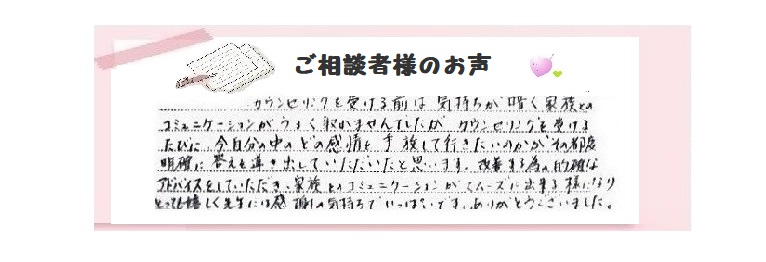 ご相談者様のお声
カウンセリングを受ける前は気持ちが暗く家族との
コミュニケーションがうまく取れませんでしたが カウンセリングを受ける
たびに、今自分の中のどの感情を手放して行きたいのかがその都度
明確に答えを導き出していただいたと思います。改善する為の的確な
アドバイスをしていただき、家族とのコミュニケーションがスムーズに出来る様になり
とっても嬉しく先生には感謝の気持ちでいっぱいです。ありがとうございました。